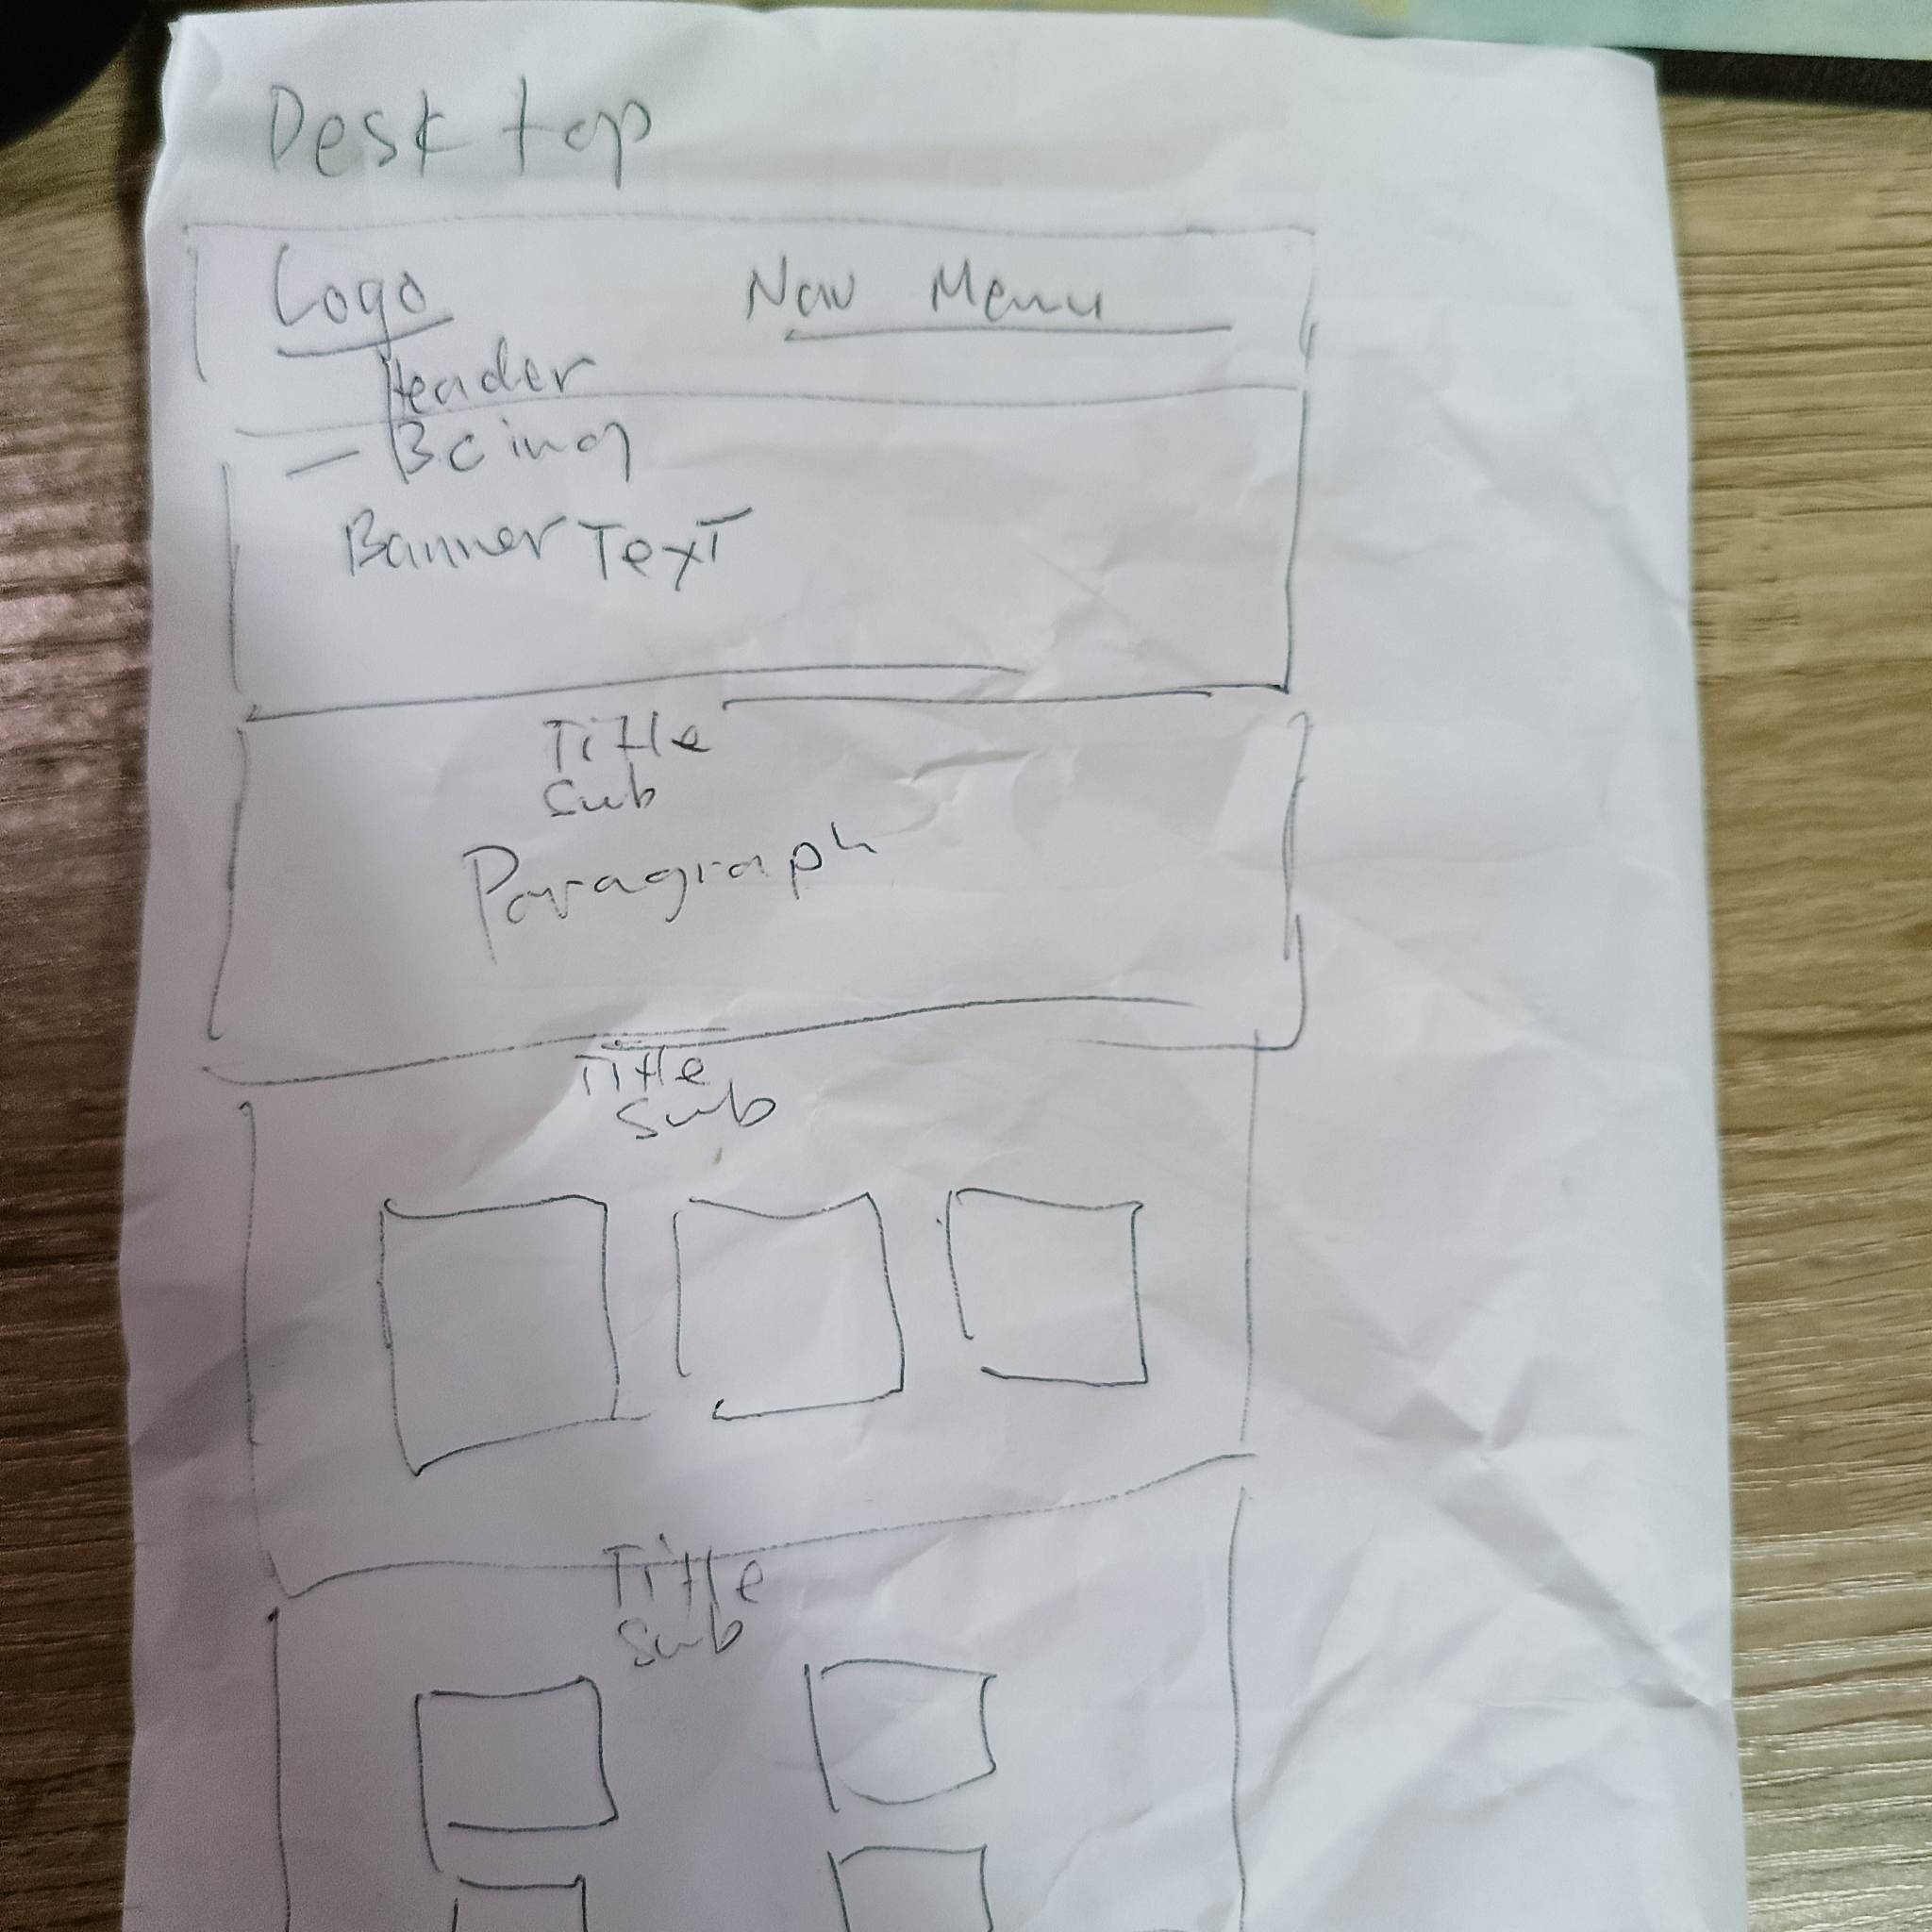 Desktop
Logo Nav Menu
Header
Banner Text
Title
Sub
Paragraph
Title
Sub
Title
Sub